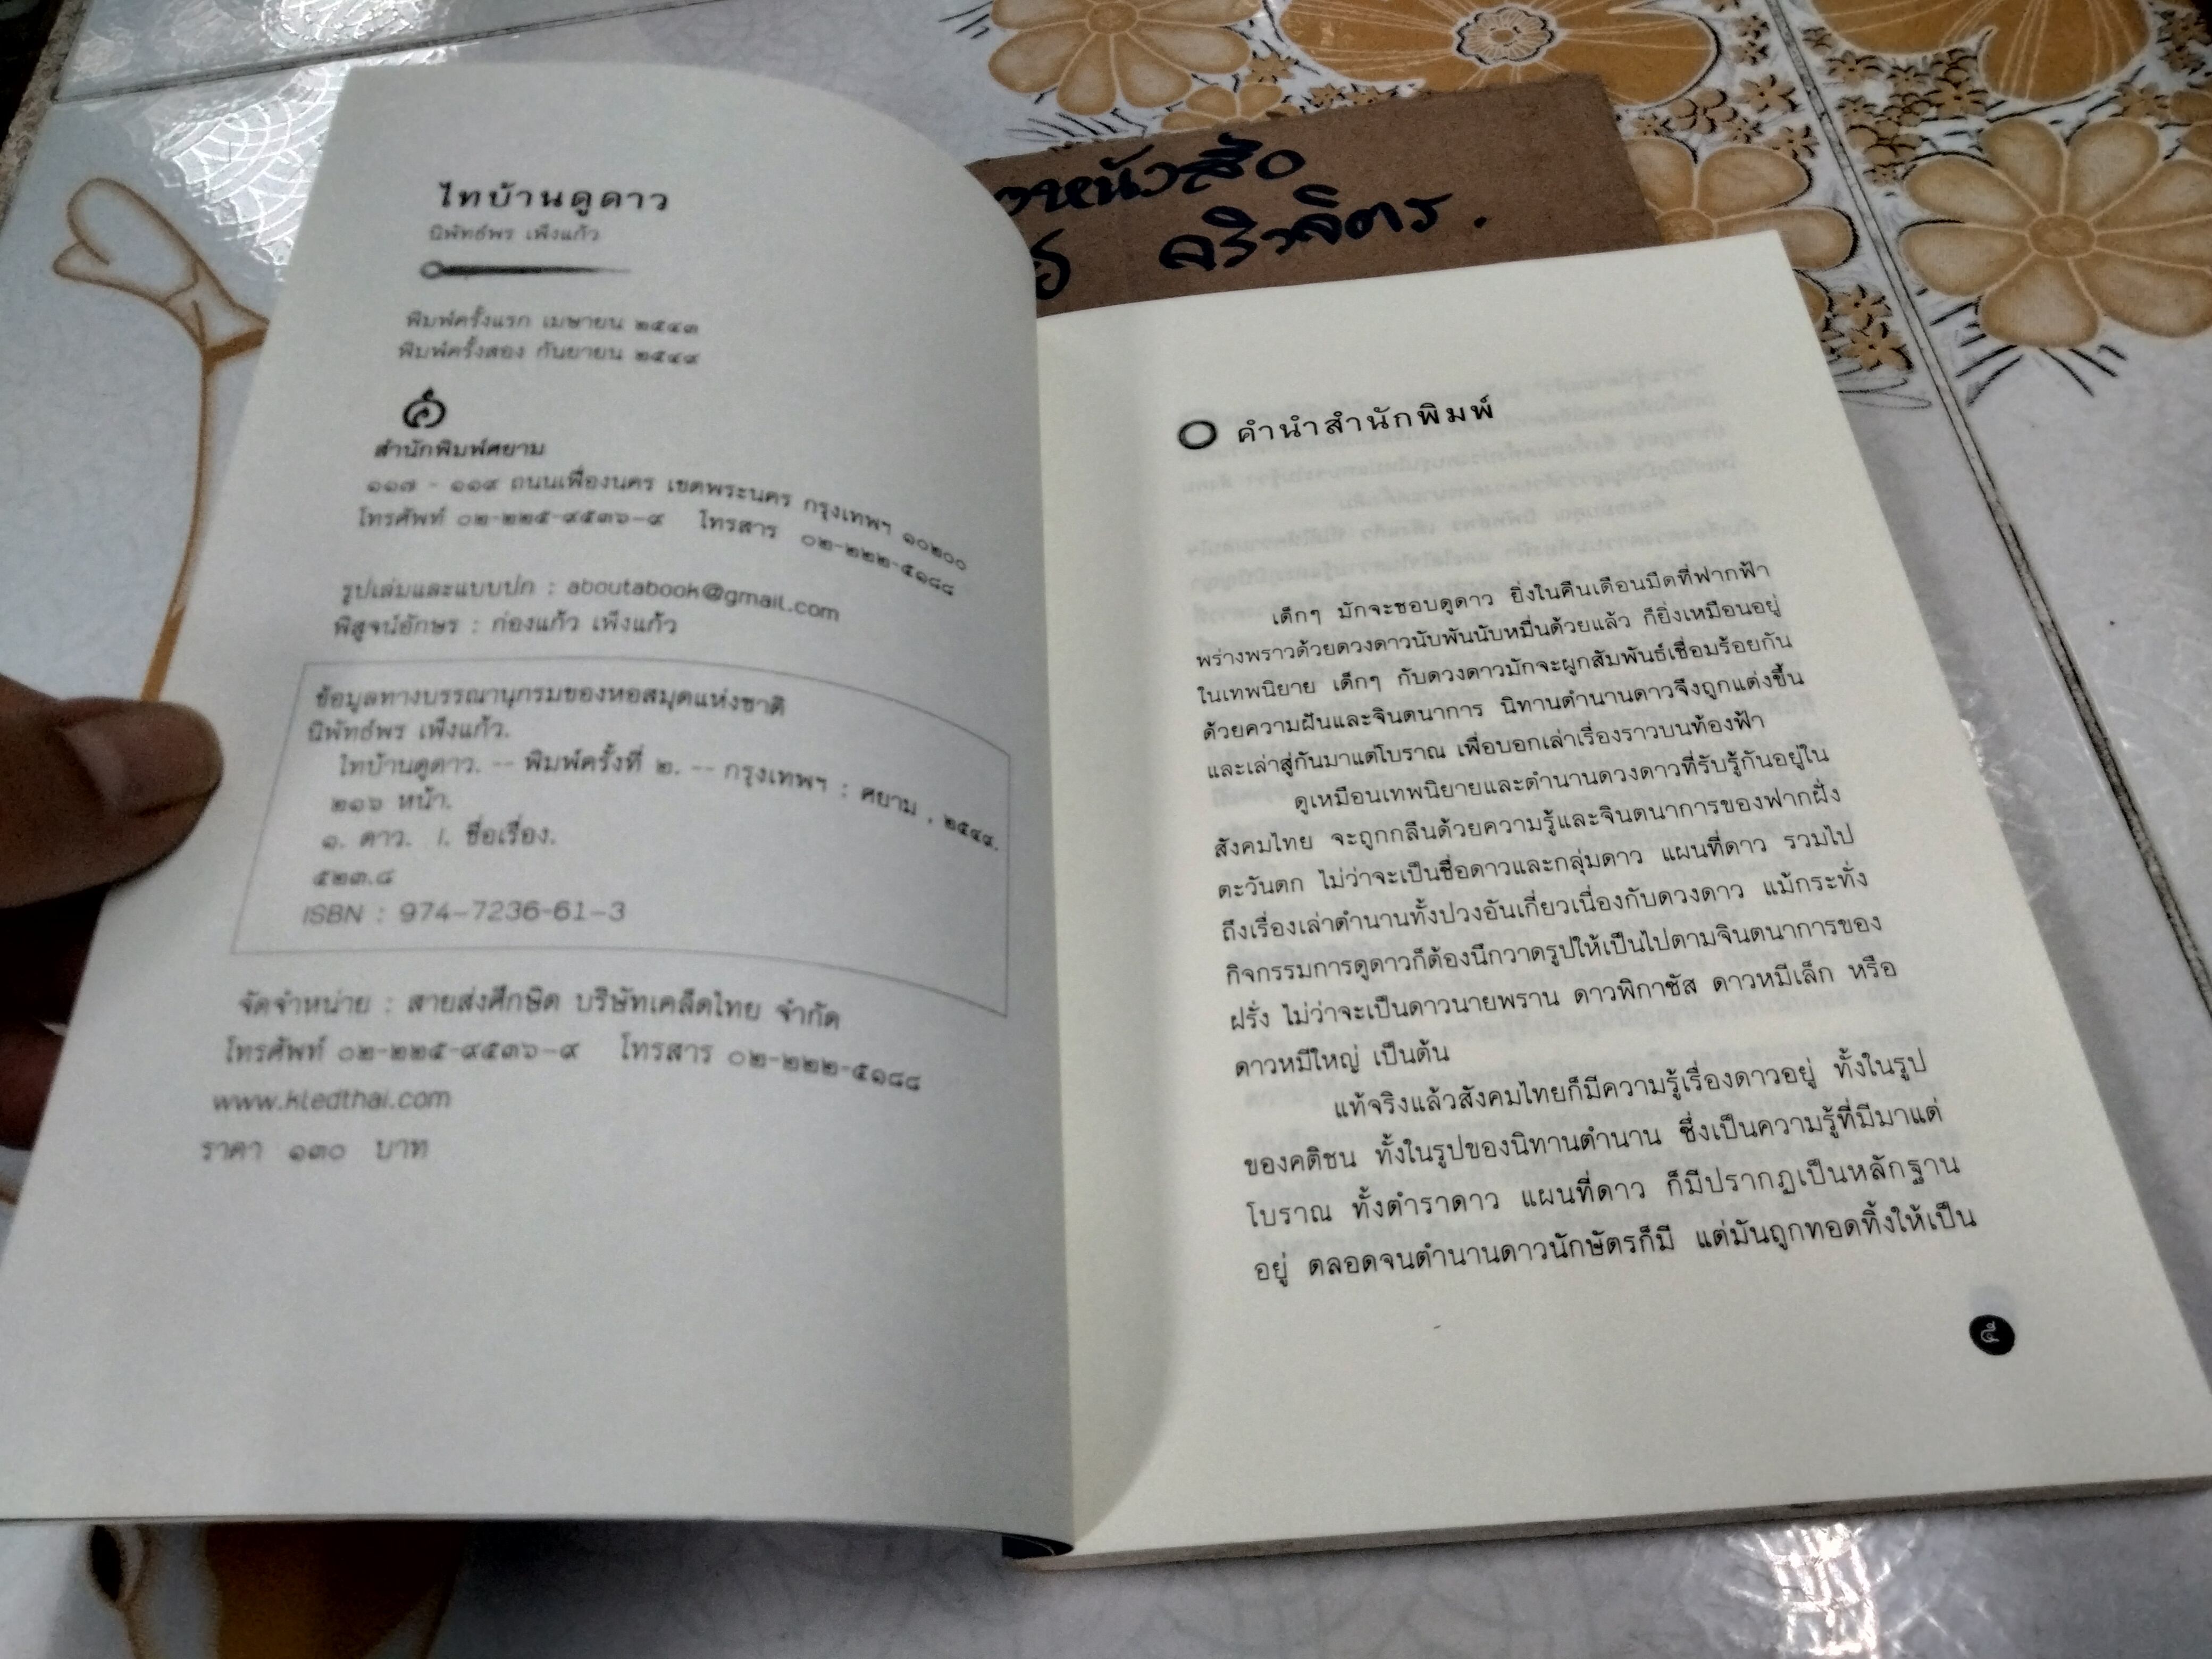 ไทบ้านดูดาว
นิพัทธ์พร เพ็งแก้ว
พิมพ์ครั้งแรก เมษายน ๒๕๔๓
พิมพ์ครั้งสอง กันยายน ๒๕๔๙
สำนักพิมพ์ศยาม
๑๑๗ - ๑๑๙ ถนนเฟื่องนคร เขตพระนคร กรุงเทพฯ ๑๐๒๐๐
โทรศัพท์ ๐๒-๒๒๕-๙๕๓๖-๙ โทรสาร ๐๒-๒๒๒-๕๑๘๘
รูปเล่มและแบบปก : aboutabook@gmail.com
พิสูจน์อักษร : ก่องแก้ว เพ็งแก้ว
ข้อมูลทางบรรณานุกรมของหอสมุดแห่งชาติ
นิพัทธ์พร เพ็งแก้ว.
ไทบ้านดูดาว. -- พิมพ์ครั้งที่ ๒. -- กรุงเทพฯ : ศยาม , ๒๕๔๙.
๒๑๖ หน้า.
๑. ดาว. I. ชื่อเรื่อง.
๕๒๓.๘
ISBN : 974-7236-61-3
จัดจำหน่าย : สายส่งศึกษิต บริษัทเคล็ดไทย จำกัด
โทรศัพท์ ๐๒-๒๒๕-๙๕๓๖-๙ โทรสาร ๐๒-๒๒๒-๕๑๘๘
www.kledthai.com
ราคา ๑๓๐ บาท
คำนำสำนักพิมพ์
เด็กๆ มักจะชอบดูดาว ยิ่งในคืนเดือนมืดที่ฟากฟ้า
พร่างพราวด้วยดวงดาวนับพันนับหมื่นด้วยแล้ว ก็ยิ่งเหมือนอยู่
ในเทพนิยาย เด็กๆ กับดวงดาวมักจะผูกสัมพันธ์เชื่อมร้อยกัน
ด้วยความฝันและจินตนาการ นิทานตำนานดาวจึงถูกแต่งขึ้น
และเล่าสู่กันมาแต่โบราณ เพื่อบอกเล่าเรื่องราวบนท้องฟ้า
ดูเหมือนเทพนิยายและตำนานดวงดาวที่รับรู้กันอยู่ใน
สังคมไทย จะถูกกลืนด้วยความรู้และจินตนาการของฟากฝั่ง
ตะวันตก ไม่ว่าจะเป็นชื่อดาวและกลุ่มดาว แผนที่ดาว รวมไป
ถึงเรื่องเล่าตำนานทั้งปวงอันเกี่ยวเนื่องกับดวงดาว แม้กระทั่ง
กิจกรรมการดูดาวก็ต้องนึกวาดรูปให้เป็นไปตามจินตนาการของ
ฝรั่ง ไม่ว่าจะเป็นดาวนายพราน ดาวพิกาซัส ดาวหมีเล็ก หรือ
ดาวหมีใหญ่ เป็นต้น
แท้จริงแล้วสังคมไทยก็มีความรู้เรื่องดาวอยู่ ทั้งในรูป
ของคติชน ทั้งในรูปของนิทานตำนาน ซึ่งเป็นความรู้ที่มีมาแต่
โบราณ ทั้งตำราดาว แผนที่ดาว ก็มีปรากฏเป็นหลักฐาน
อยู่ ตลอดจนตำนานดาวนักษัตรก็มี แต่มันถูกทอดทิ้งให้เป็น
๕